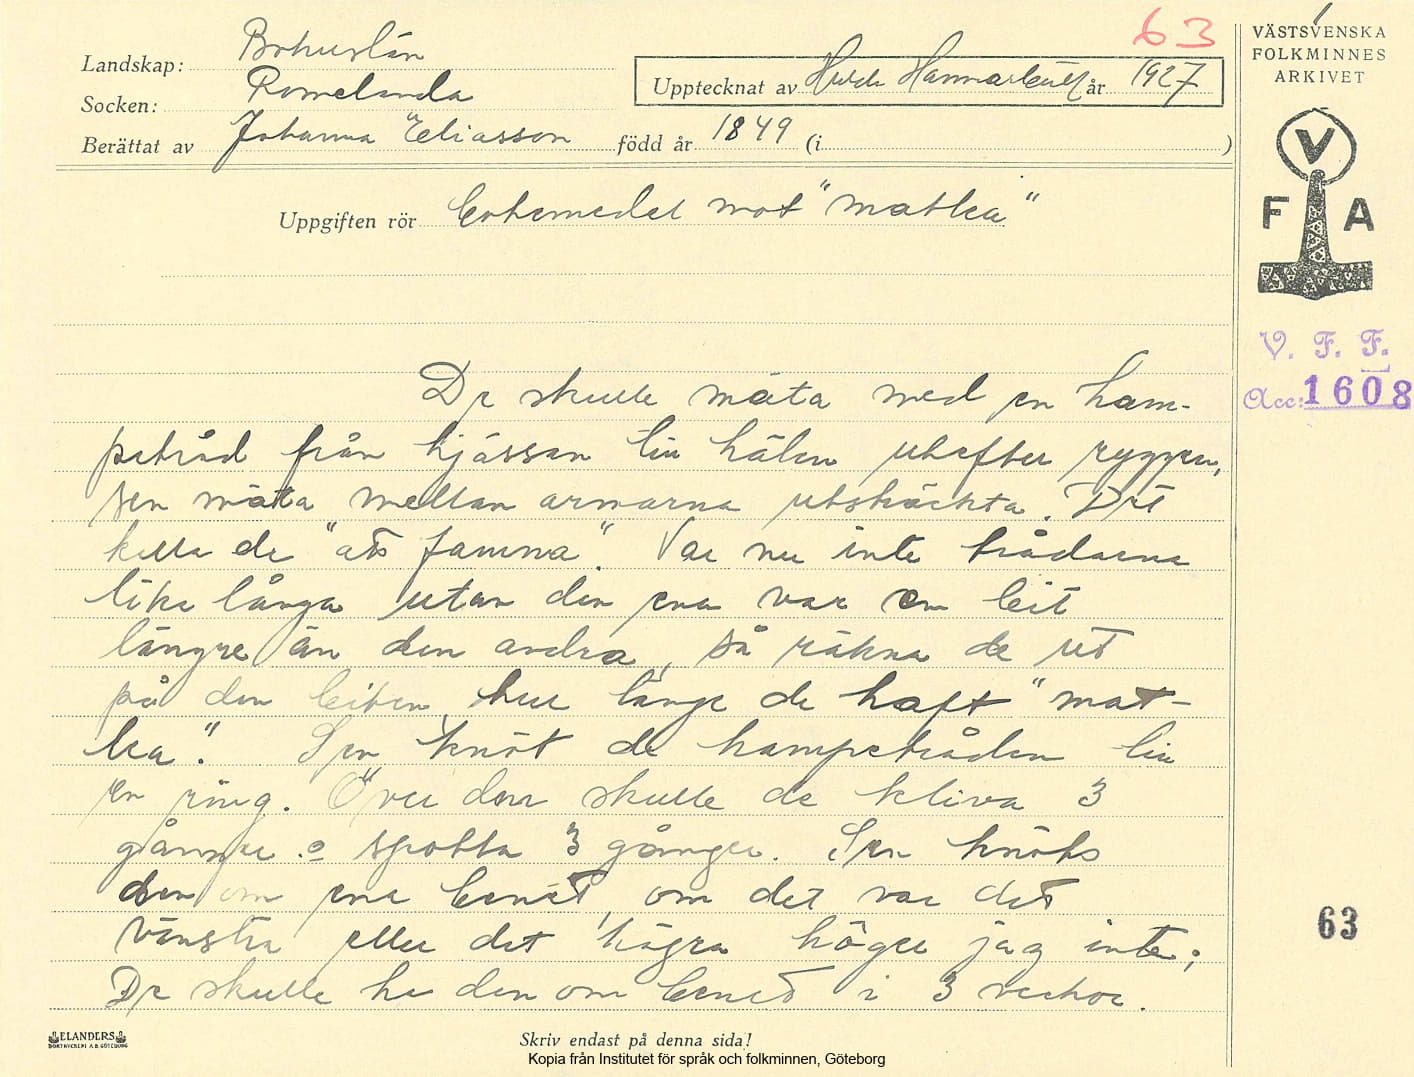 63
VÄSTSVENSKA
FOLKMINNES
ARKIVET
Landskap: Bohuslän
Upptecknat av Hulda Hammarbäck år 1927
Socken: Romelanda
Berättat av Johanna Eliasson född år 1849 (i )
V
F A
Uppgiften rör botemedel mot "matlea"
V. F. F.
Acc: 1608
De skulle mäta med en ham-
petråd från hjässan till hälen utefter ryggen,
sen mäta mellan armarna utsträckta. Det
kalla de "att famna". Var nu inte trådarna
lika långa utan den ena var en bit
längre än den andra, så räkna de ut
på den biten hur länge de haft "mat-
lea". Sen knöt de hampetråden till
en ring. Över den skulle de kliva 3
gånger o spotta 3 gånger. Sen knöts
den om ena benet, om det var det
63
vänstra eller det högra höger jag inte;
De skulle ha den om benet i 3 veckor.
ELANDERS
BOKTRYCKERI A.B. GÖTEBORG
Skriv endast på denna sida!
Kopia från Institutet för språk och folkminnen, Göteborg